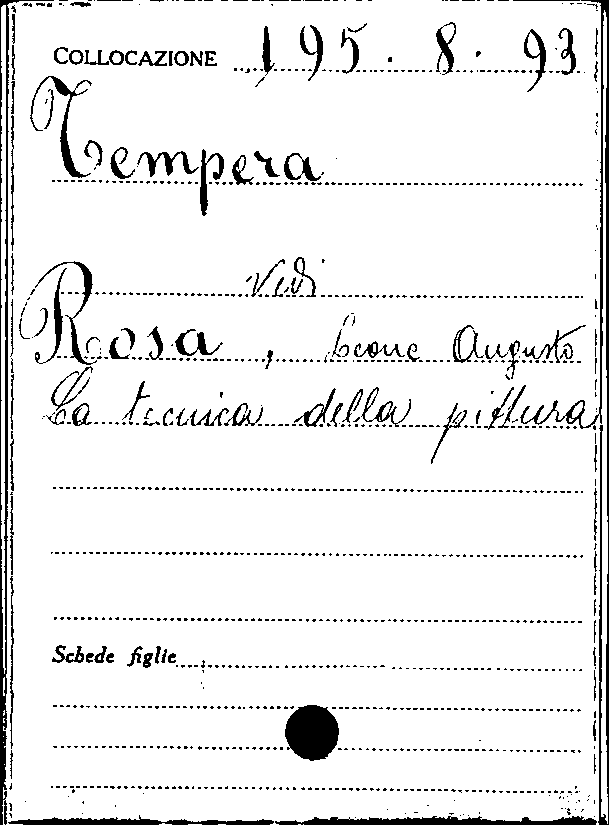 COLLOCAZIONE 195.8.93
Tempera
Vedi
Rosa, Leone Augusto
La tecnica della pittura
Schede figlie